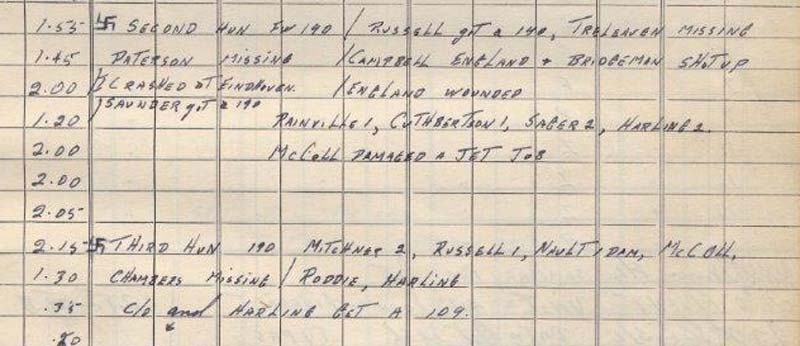 1.55 卐 SECOND HUN FW 190 / RUSSELL got a 190, TRELEAVEN MISSING
1.45 PATERSON MISSING / CAMPBELL ENGLAND + BRIDGEMAN SHOT UP
2.00 I CRASHED AT EINDHOVEN. / ENGLAND WOUNDED
SAUNDER got a 190
1.20 RAINVILLE 1, CUTHBERTSON 1, SAGER 2, HARLING 2.
2.00 McCOLL DAMAGED A JET JOB
2.00
2.05
2.15 卐 THIRD HUN 190 MITCHNER 2, RUSSELL 1, NAULT 1 DAM, McCOLL,
1.30 CHAMBERS MISSING / RODDIE, HARLING
.35 C/O and HARLING GET A 109.
.20